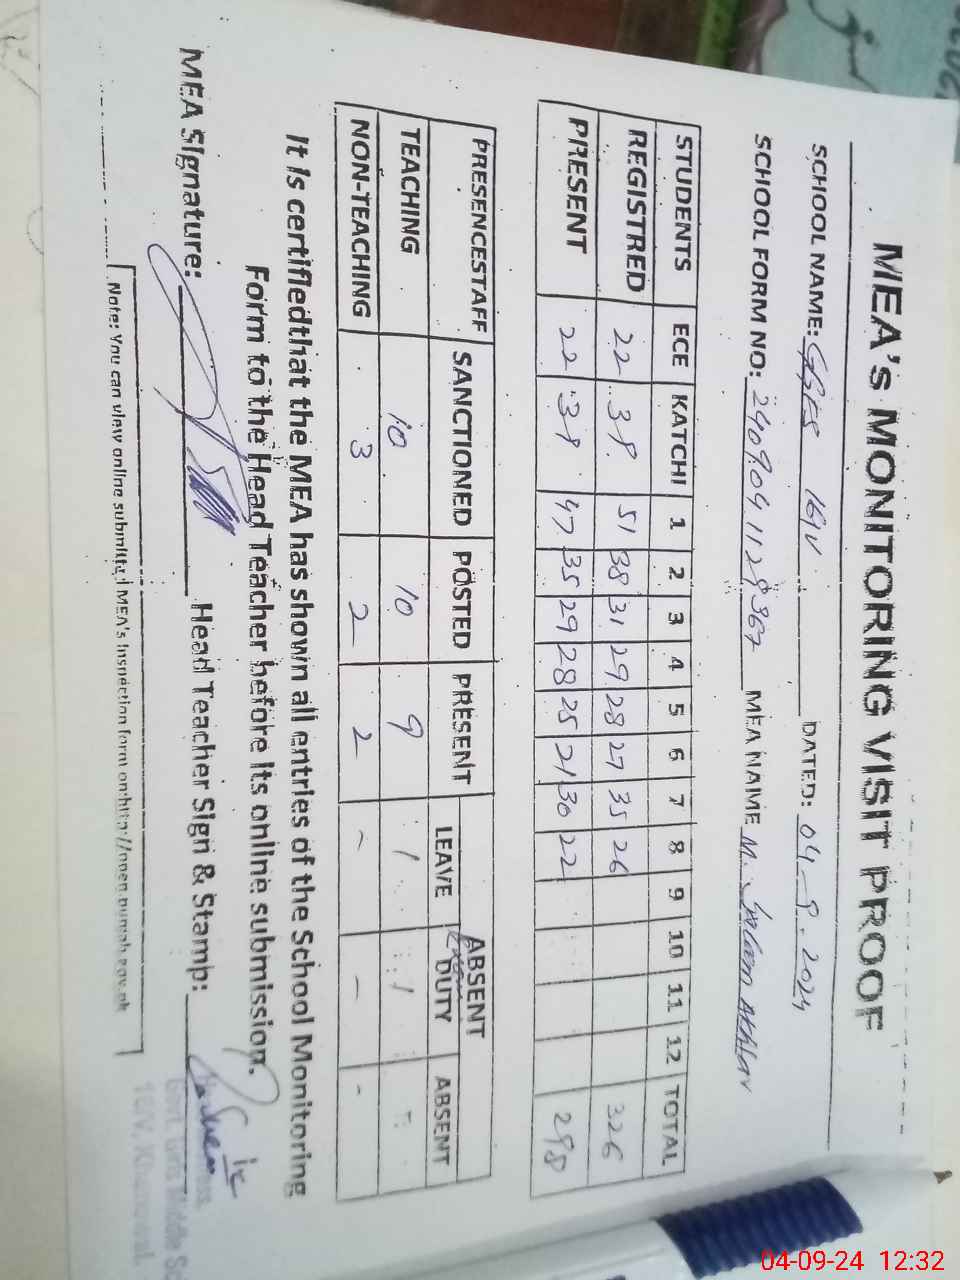 MEA's MONITORING VISIT PROOF
SCHOOL NAME: 16/V DATED: 04-9-2024
SCHOOL FORM NO: MEA NAME M. Saleem Akhtar
STUDENTS ECE KATCHI 1 2 3 4 5 6 7 8 9 10 11 12 TOTAL
REGISTRED 22 39 51 38 31 29 28 27 35 26 326
PRESENT 22 39 47 35 29 28 25 21 30 22 298
PRESENCESTAFF SANCTIONED POSTED PRESENT ABSENT
LEAVE DUTY ABSENT
TEACHING 10 10 9 1
NON-TEACHING 3 2 2 - - -
It is certifiedthat the MEA has shown all entries of the School Monitoring
Form to the Head Teacher before its online submission.
MEA Signature: Head Teacher Sign & Stamp:
Govt. Girls Middle S
16/V, Khanewal
Note: You can view online submitted MEA's inspection form on:http://open.punjab.gov.pk
04-09-24 12:32